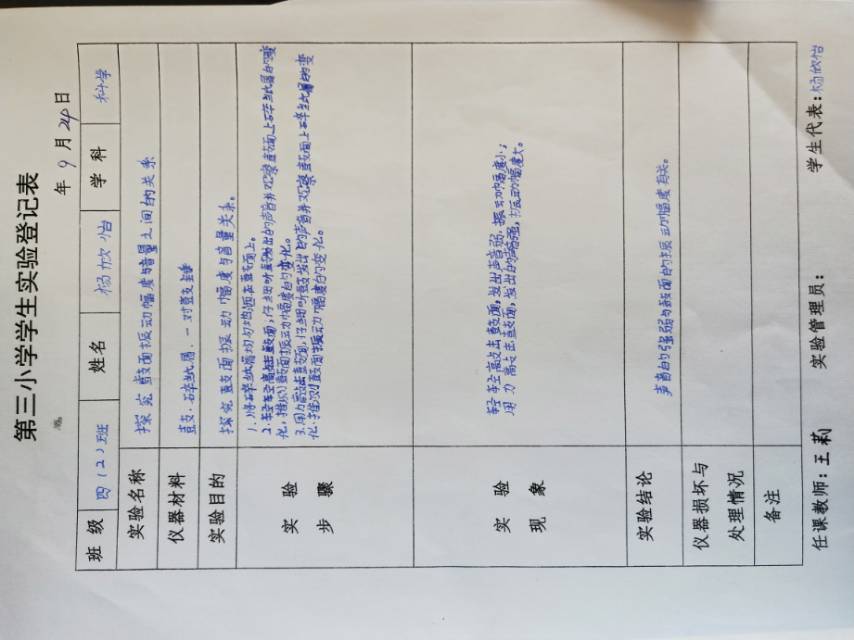 第三小学学生实验登记表
年 9 月 24 日
班 级 四（2）班 姓名 杨欣怡 学 科 科学
实验名称 探究鼓面振动幅度与音量之间的关系
仪器材料 鼓、碎纸屑、一对鼓锤
实验目的 探究鼓面振动幅度与音量关系。
实 验
步 骤
1.将碎纸屑均匀地洒在鼓面上。
2.轻轻敲击鼓面,仔细听鼓发出的声音并观察鼓面上碎纸屑的变
化,推测鼓面振动幅度的变化。
3.用力敲击鼓面,仔细听鼓发出的声音并观察鼓面上碎纸屑的变
化,推测鼓面振动幅度的变化。
实 验
现 象
轻轻敲击鼓面,发出声音弱,振动幅度小;
用力敲击鼓面,发出的声音强,振动幅度大。
实验结论 声音的强弱与鼓面的振动幅度有关。
仪器损坏与
处理情况
备注
任课教师：王莉 实验管理员： 学生代表：杨欣怡